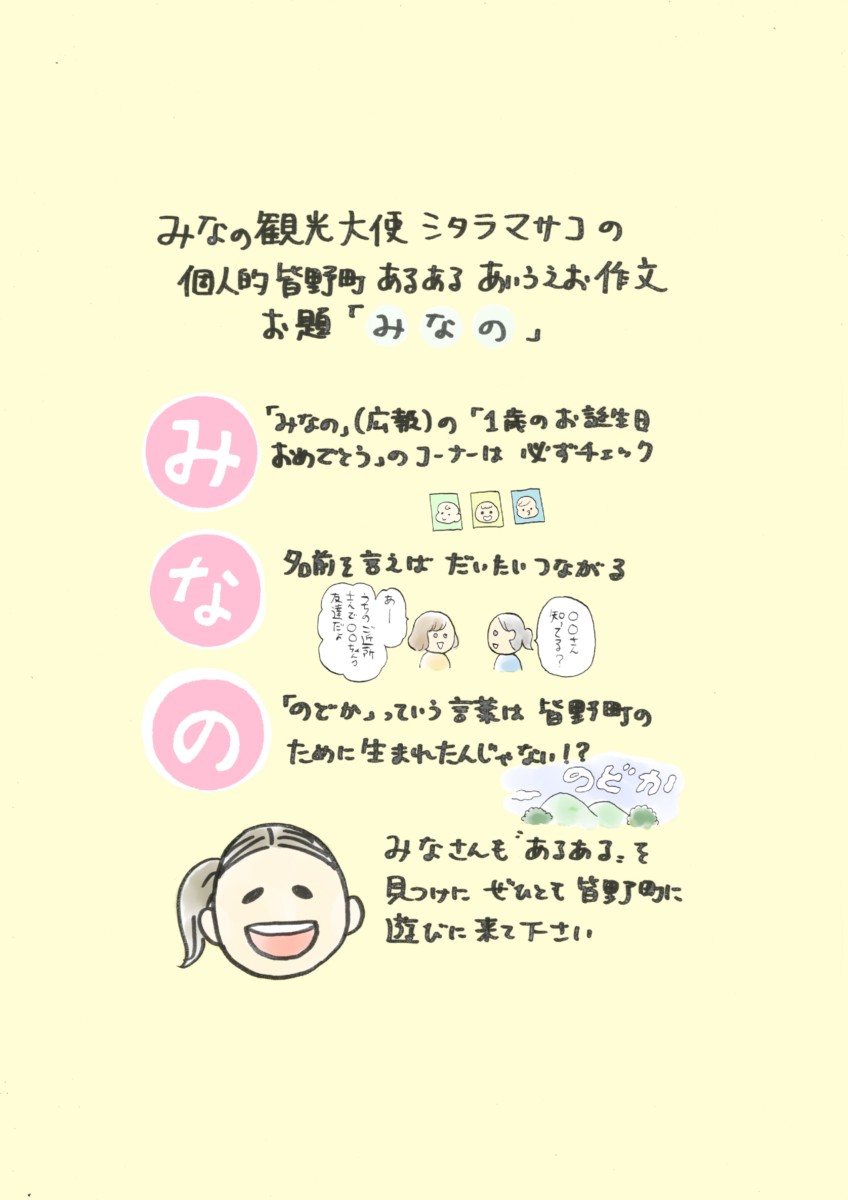 みなの観光大使 ミタラマサコの
個人的 皆野町 あるある あいうえお作文
お題「みなの」
み
「みなの」(広報)の「1歳のお誕生日
おめでとう」のコーナーは 必ずチェック
な
名前を言えば だいたい つながる
〇〇さん
知ってる?
あー
うちのご近所
さんで〇〇ちゃんの
友達だよ
の
「のどか」っていう 言葉は 皆野町の
ために 生まれたんじゃない!?
のどか
みなさんも"あるある"を
見つけに ぜひとも 皆野町に
遊びに 来て下さい